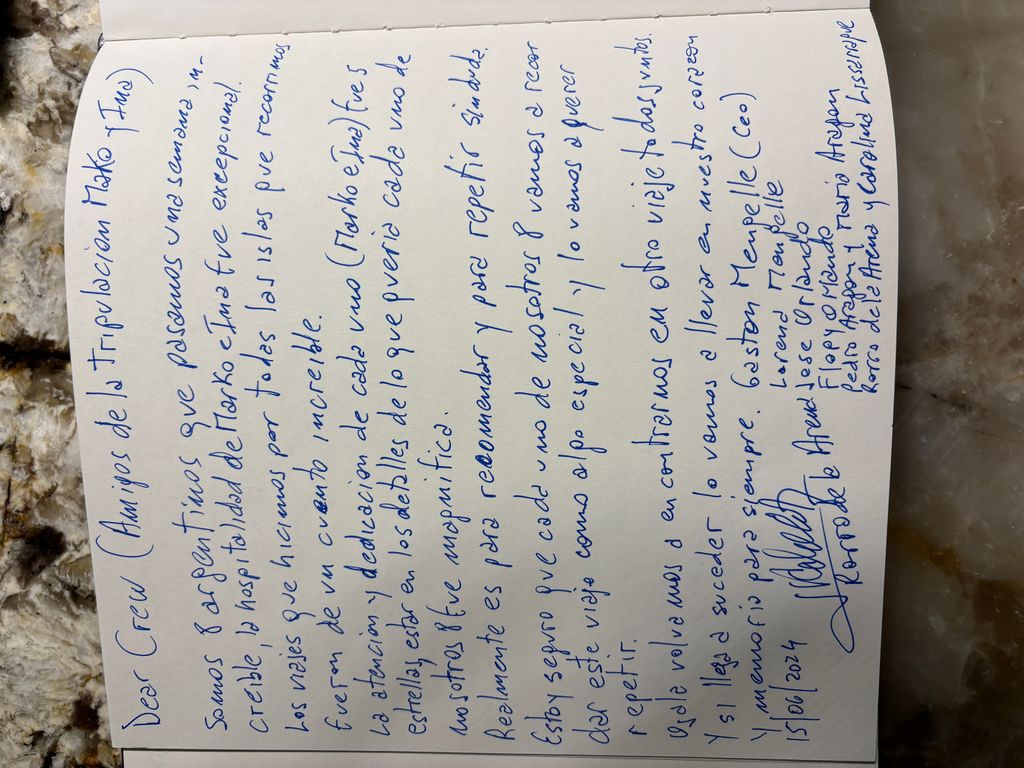 Dear Crew (Amigos de la tripulacion Marko y Ima)
Somos 8 argentinos que pasamos una semana in-
creible, la hospitalidad de Marko e Ima fue excepcional.
Los viajes que hicimos por todas las islas que recorrimos
fueron de un cuento increible.
La atencion y dedicacion de cada uno (Marko e Ima) fue 5
estrellas, estar en los detalles de lo que queria cada uno de
nosotros 8 fue magnifica.
Realmente es para recomendar y para repetir sin duda.
Estoy seguro que cada uno de nosotros 8 vamos a recor
dar este viaje como algo especial y lo vamos a querer
repetir.
Ojala volvamos a encontrarnos en otro viaje todos juntos.
Y si llega suceder lo vamos a llevar en nuestro corazon
y memoria para siempre. Gaston Mengelle (Ceo)
15/06/2024
Lorena Mengelle
Jose Orlando
Flopy Orlando
Pedro Aragon y Maria Aragon
Rorro de la Arena y Carolina
Rorro de la Arena